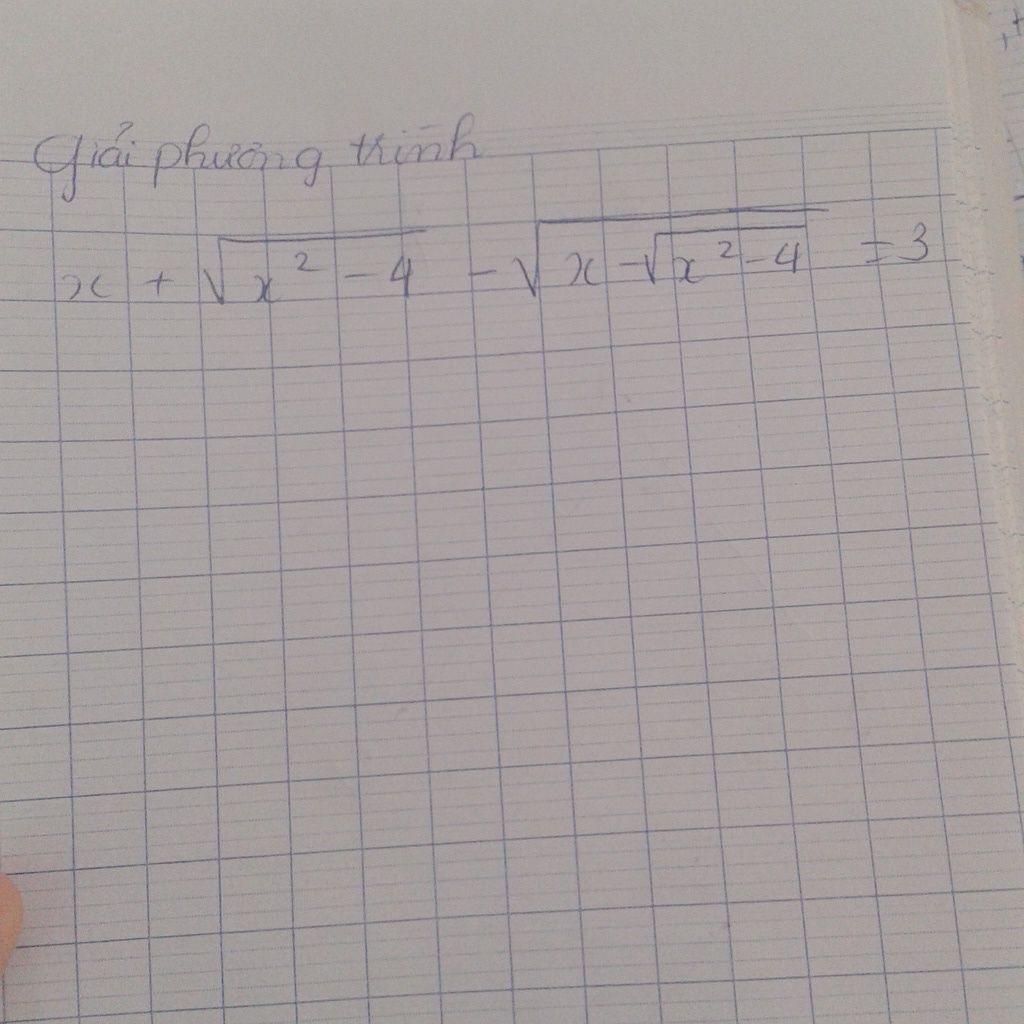 Giải phương trình
x + √(x² - 4) - √(x - √(x² - 4)) = 3